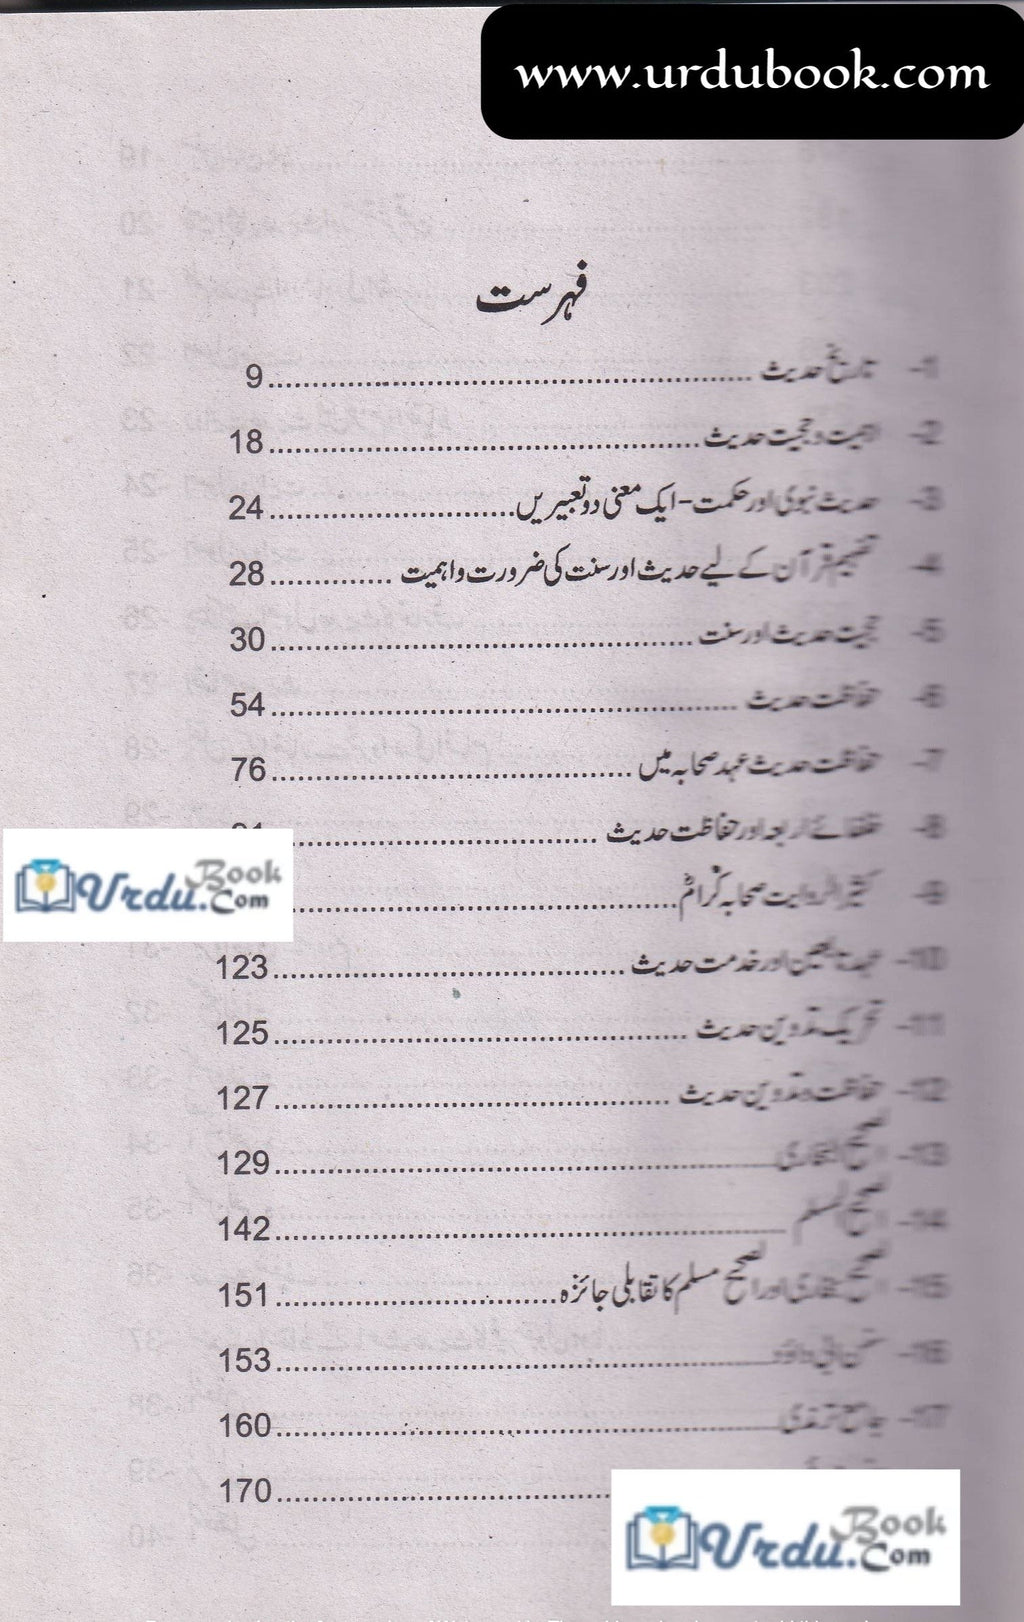 www.urdubook.com
فہرست
1- تاریخ حدیث ........ 9
2- اہمیت و حجیت حدیث ........ 18
3- حدیث نبوی اور حکمت - ایک معنی دو تعبیریں ........ 24
4- تفہیم قرآن کے لیے حدیث اور سنت کی ضرورت و اہمیت ........ 28
5- حجیت حدیث اور سنت ........ 30
6- حفاظت حدیث ........ 54
7- حفاظت حدیث عہد صحابہ میں ........ 76
8- خلفائے اربعہ اور حفاظت حدیث ........
9- کثیر الروایت صحابہ کرامؓ ........
10- عہد تابعین اور خدمت حدیث ........ 123
11- تحریک تدوین حدیث ........ 125
12- حفاظت و تدوین حدیث ........ 127
13- الصحیح البخاری ........ 129
14- الصحیح المسلم ........ 142
15- الصحیح بخاری اور الصحیح مسلم کا تقابلی جائزہ ........ 151
16- سنن ابی داؤد ........ 153
17- جامع ترمذی ........ 160
........ 170
Urdu Book .Com
Urdu Book .Com